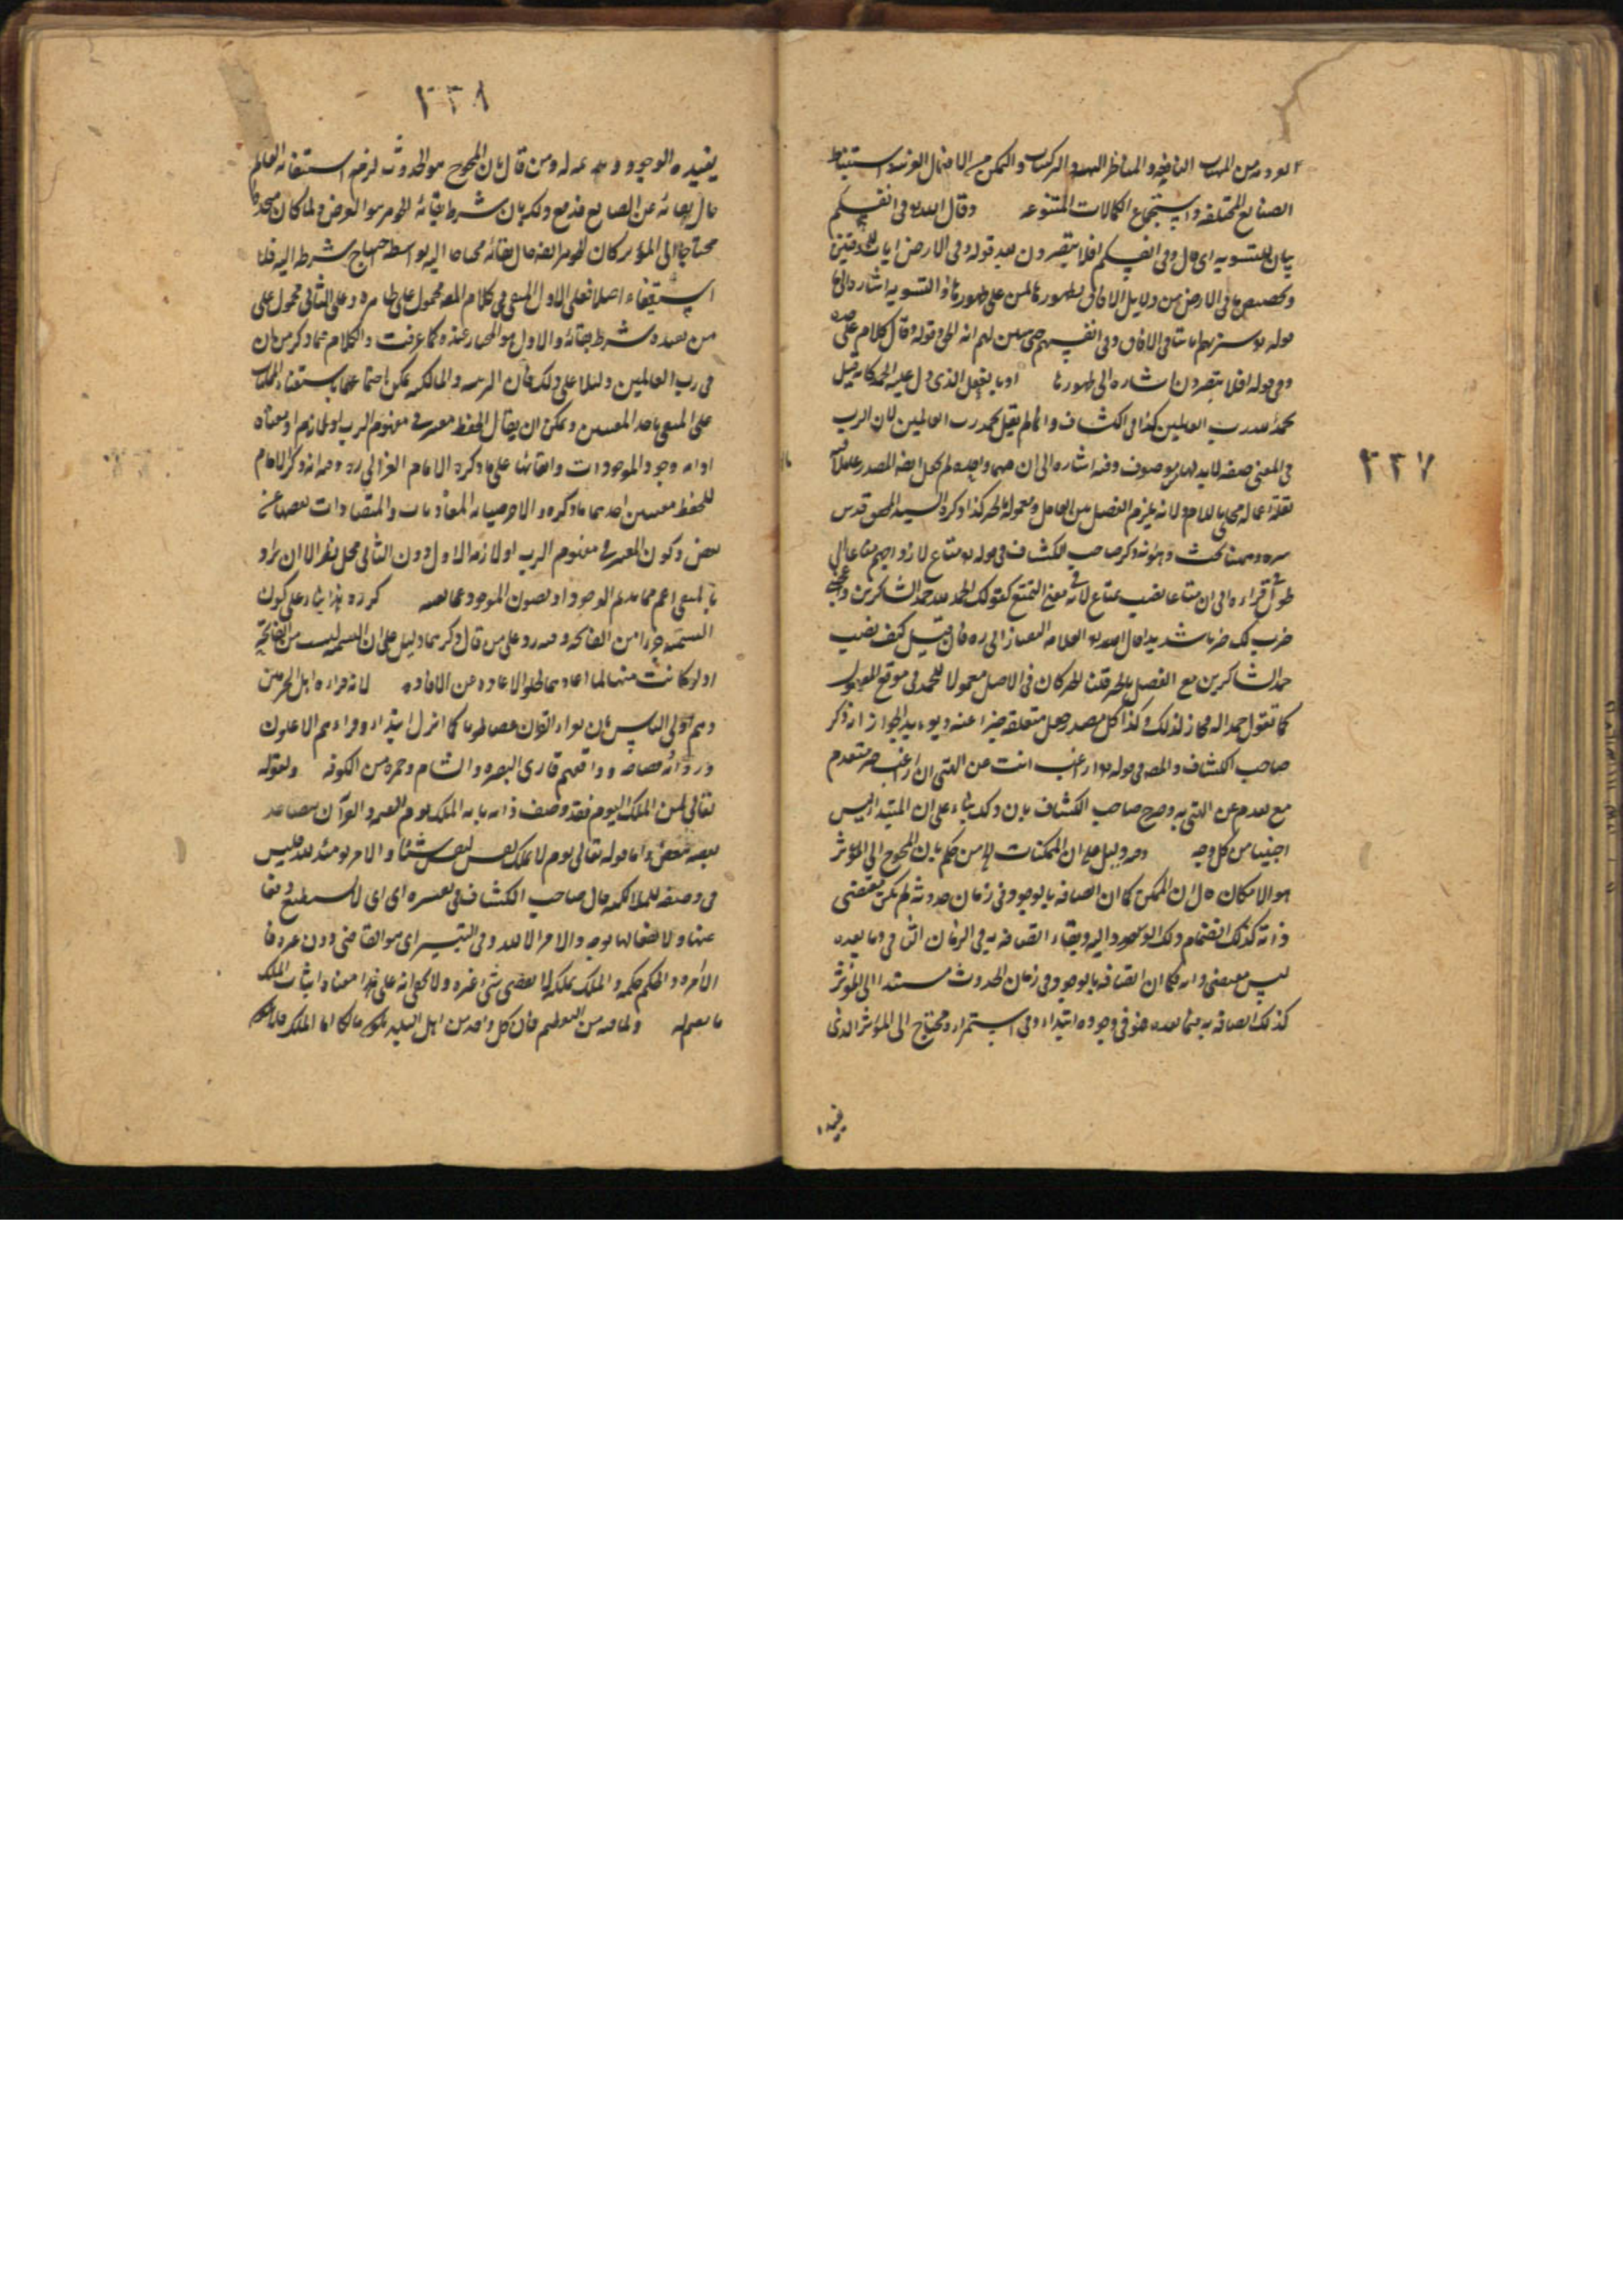 ٣٣٧
من الهيات النافعة والمناظر البهية والتركيبات والتمكن من الافعال الغريبة واستنباط
الصنايع المختلفة واستجماع الكمالات المتنوعة وقال الله تعالى وفى انفسكم
بيان للتسوية اى قال وفى انفسكم افلا تبصرون بعد قوله وفى الارض ايات للموقنين
وتخصيص ما فى الارض من دلايل الافاق لظهورها لمن على ظهورها والتسوية اشارة اليها
قوله تعالى سنريهم اياتنا فى الافاق وفى انفسهم حتى يتبين لهم انه الحق وقوله وقال كلام على حده
وفى قوله افلا تبصرون اشارة الى ظهورها او بالفعل الذى دل عليه الحمد كانه قيل
نحمد الله رب العالمين كذا فى الكشاف وانما لم يقل نحمد رب العالمين لان الرب
فى المعنى صفة لا بد لها من موصوف وفيه اشارة الى ان
لقلة اعمال محلى باللام ولانه يلزم الفصل بين العامل ومعموله بالخبر كذا ذكره السيد المحقق قدس
سره وههنا بحث وهو انه ذكر صاحب الكشاف فى قوله تعالى متاع لازواجهم متاعا الى
الحول فى قراءة ابى ان متاعا نصب بمتاع لانه فى معنى التمتع كقولك الحمد لله حمد الشاكرين واعجبنى
ضرب لك ضربا شديدا قال العلامة التفتازانى ره فان قيل كيف نصب
حمد الشاكرين مع الفصل بالخبر قلنا الخبر كان فى الاصل معمولا للحمد فى موقع المفعول
كما تقول حمدا له فجاز لذلك وكذا كل مصدر جعل متعلقه خبرا عنه ويؤيد الجواز اذ ذكر
صاحب الكشاف والمص فى قوله تعالى اراغب انت عن الهتى ان راغب خبر مقدم
مع تقدم عن الهتى به وصرح صاحب الكشاف بان ذلك بناء على ان المبتدأ ليس
اجنبيا من كل وجه وفيه دليل على ان الممكنات لا من حكم بان المحوج الى المؤثر
هو الامكان قال ان الممكن كما ان اتصافه بالوجود فى زمان حدوثه لم يكن مقتضى
ذاته كذلك انضمام ذلك الوجود اليه وبقاء اتصافه به فى الزمان الثانى وما بعده
ليس مقتضى ذاته فكما ان اتصافه بالوجود فى زمان الحدوث مستند الى المؤثر
كذلك اتصافه به فيما بعده فهو فى وجوده ابتداء وفى استمراره محتاج الى المؤثر الذى
يفيده
٣٣٨
يفيده الوجود ويديمه له ومن قال بان المحوج هو الحدوث لزمه استغناء العالم
حال بقائه عن الصانع فدفع ذلك بان شرط بقاء الجوهر هو العرض ولما كان متجددا
محتاجا الى المؤثر كان الجوهر ايضا حال بقائه محتاجا اليه بواسطة احتياج شرطه اليه فلا
استغناء اصلا فعلى الاول المبقى فى كلام المص محمول على ظاهره وعلى الثانى محمول على
من يفيد شرط بقائه والاول هو المختار عنده كما عرفت والكلام مما ذكر من ان
فى رب العالمين دليلا على ذلك فان الرحمة والمالكية يمكن اجتماعهما باستغناء الممكنات
على المبقى باحد المعنيين ويمكن ان يقال الحفظ معتبر فى مفهوم الرب او لازم له او معناه
ادامة وجود الموجودات وابقائها على ما ذكره الامام الغزالى ره وفيه انه ذكر الامام
للحفظ معنيين احدهما ما ذكره والاخر صيانة المتعاديات والمتضادات بعضها عن
بعض وكون المعتبر فى مفهوم الرب او لازمه الاول دون الثانى محل نظر الا ان يراد
بالمبقى اعم مما يديم الوجود او يصون الموجود عما كرره بناء على كون
التسمية جزأ من الفاتحة وفيه رد على من قال ذكرهما دليل على ان البسملة ليست من الفاتحة
اذ لو كانت منها لما اعادهما لخلو الاعادة عن الافادة لانه قراءة اهل الحرمين
وهم اولى الناس بان يقرؤا القران غضا طريا كما انزل ابتداء وقراءهم الاعلون
رواية وفصاحة ووافقهم قارى البصرة والشام وحمزة من الكوفة ولقوله
تعالى لمن الملك اليوم فقد وصف ذاته بانه الملك يوم القيمة والقرآن يعاضد
بعضه بعضا واما قوله تعالى يوم لا تملك نفس لنفس شيئا والامر يومئذ لله فليس
فى وصفه للمالكية قال صاحب الكشاف فى تفسيره اى لا تستطيع دفعا
عنها ولا نفعا لها بوجه ولا امر الا لله وفى التيسير اى هو القاضى دون غيره فا
الامر والحكم حكمه والملك بملكه لا يقضى شئ غيره ولا يخفى انه على هذا معناه اثبات الملك
ولما فيه من التعظيم فان كل واحد من اهل البلد مالكا اما الملك فلا